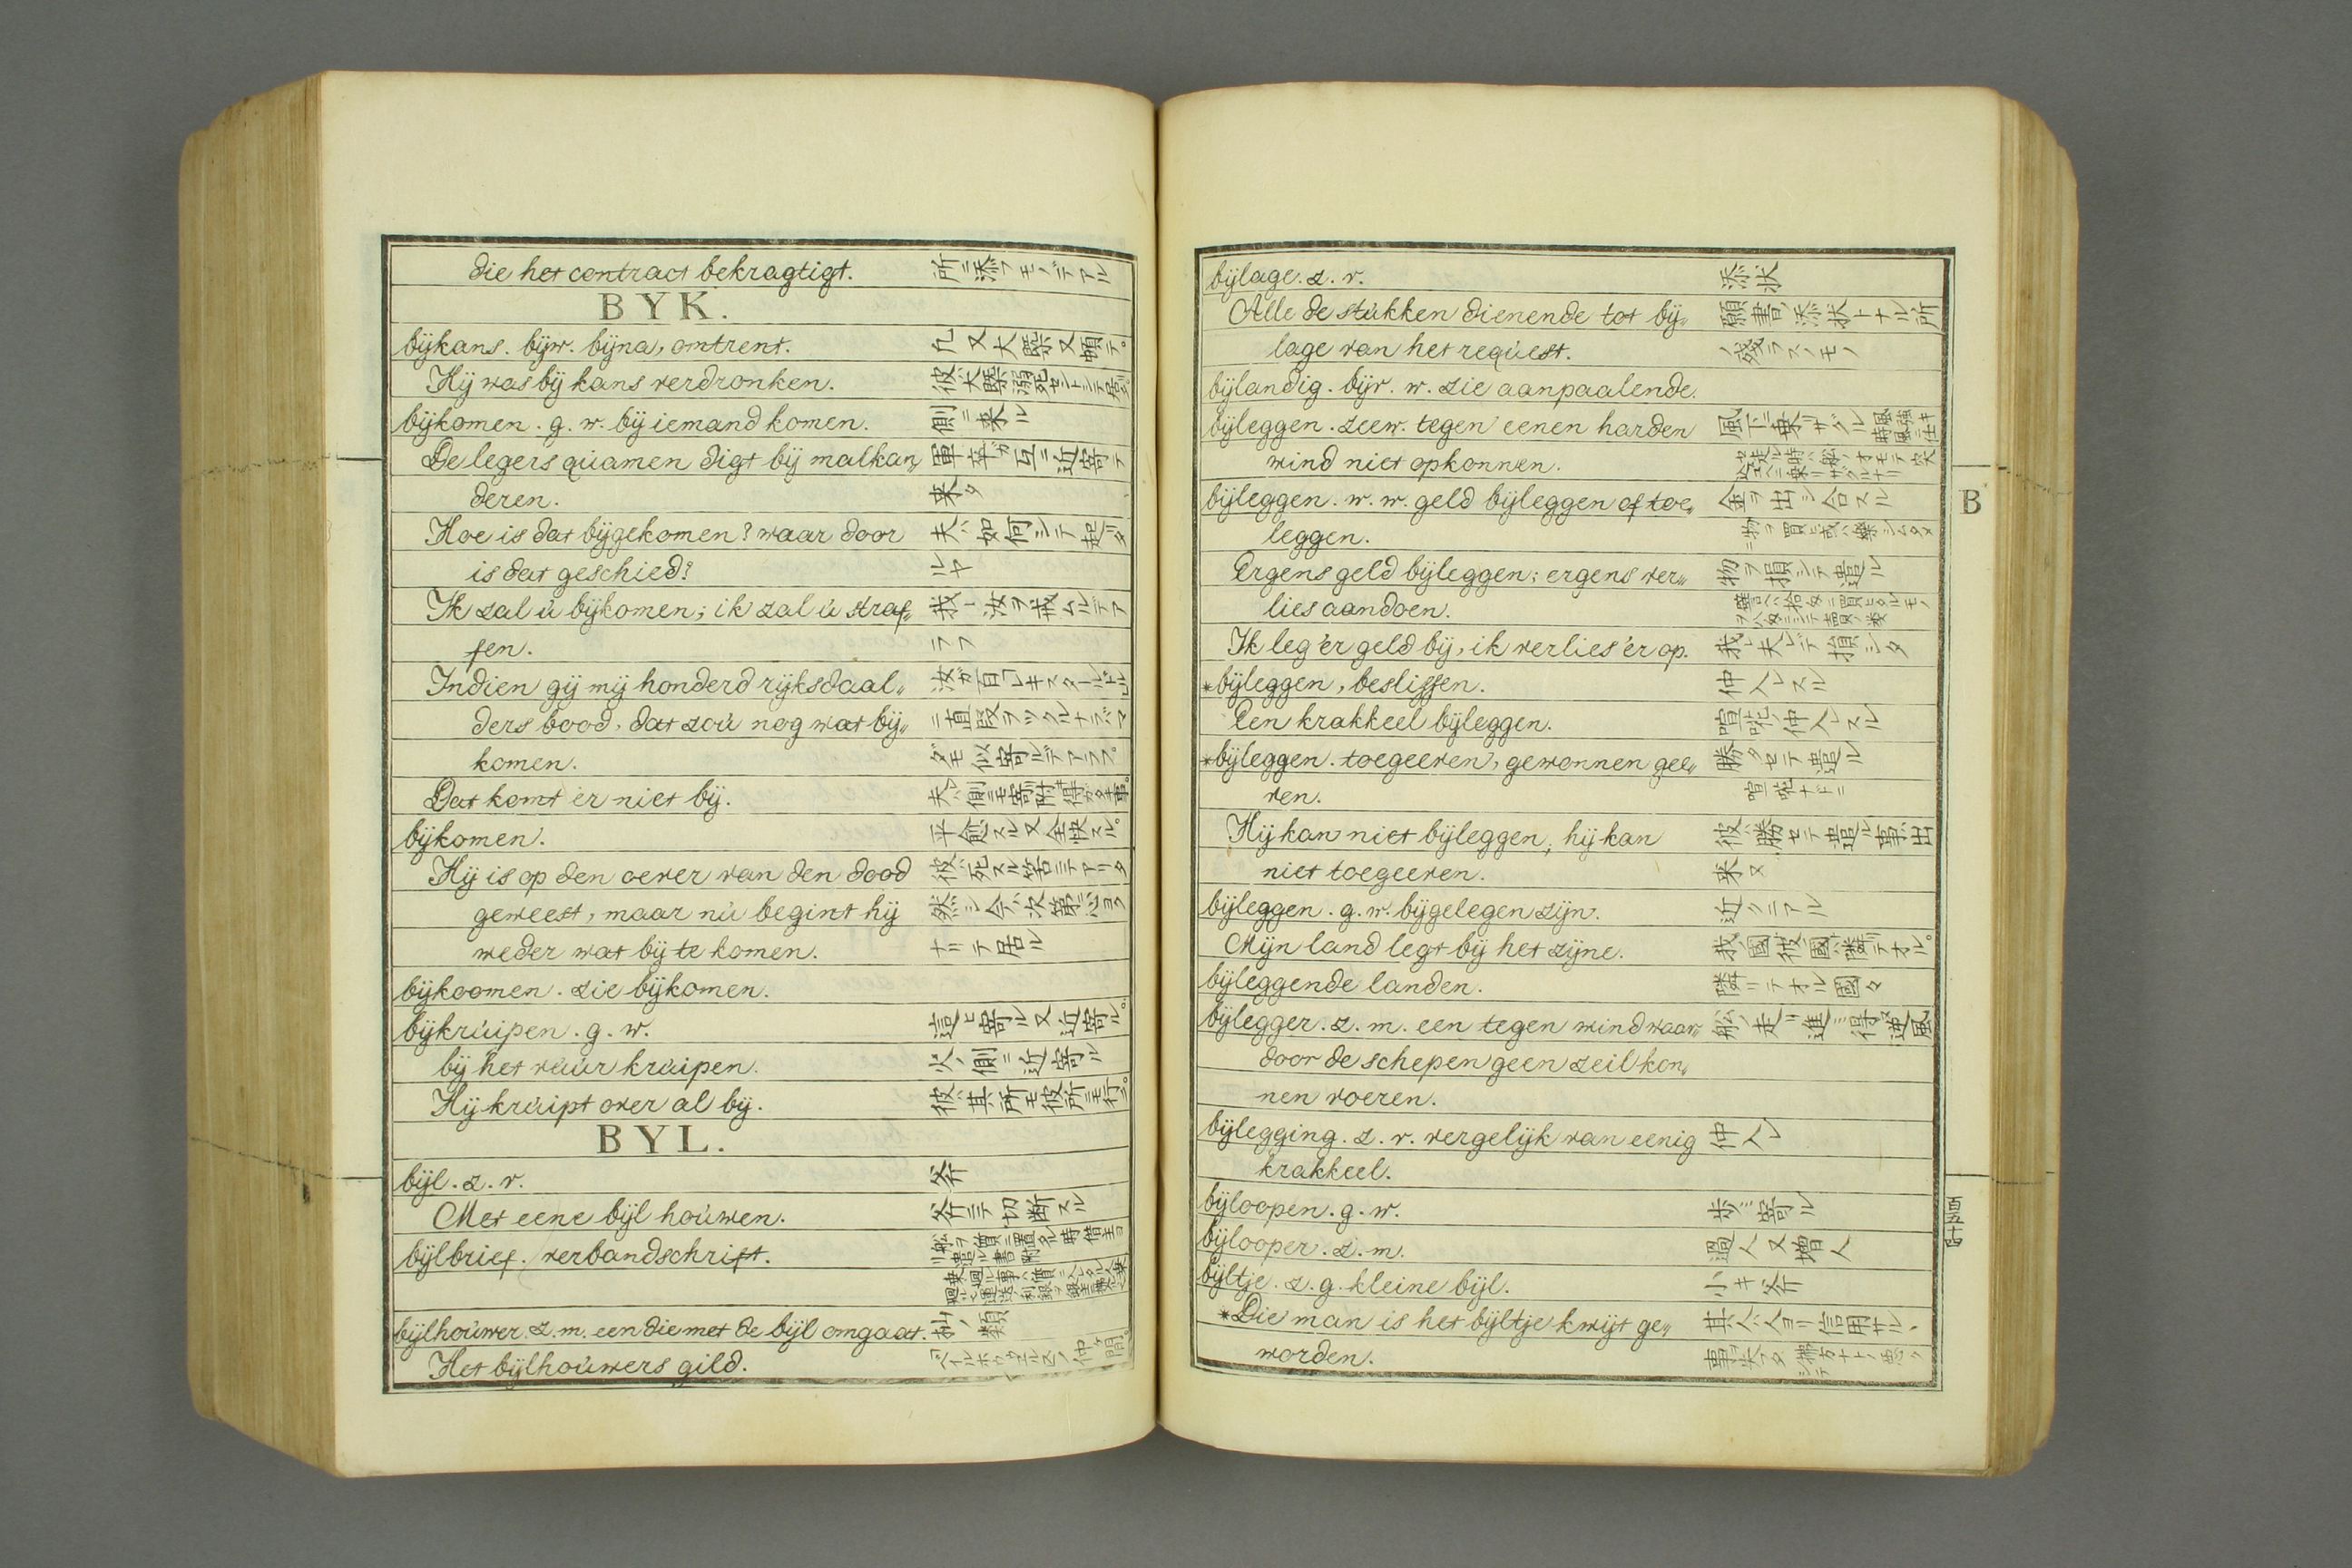 die het contract bekragtigt. 所ニ添フモノデアル
BYK.
bijkans. bijw. bijna, omtrent. 凡又大槩又頓テ。
Hij was bij kans verdronken. 彼ハ大槩溺死セントシテ居タ
bijkomen. g. w. bij iemand komen. 側ニ来ル
De legers qúamen digt bij malkan„ 軍卒ガ互ニ近寄テ
deren. 来タ
Hoe is dat bijgekomen? waar door 夫ハ如何シテ起タ
is dat geschied? ルヤ
Ik zal ú bijkomen; ik zal ú straf„ 我レ汝ヲ戒ムルデア
fen. ラフ
Indien gij mij honderd rijksdaal„
ders bood, dat zoú nog wat bij„ ニ直段ヲツクルナラバマ
komen. ダモ似寄ルデアラフ。
Dat komt ér niet bij.
bijkomen. 平愈スル又全快スル。
Hij is op den oever van den dood 彼ハ死スル筈ニテアリタ
geweest, maar nú begint hij 然シ今ハ次第ニ心ヨク
weder wat bij te komen. ナリテ居ル
bijkoomen. zie bijkomen.
bijkrúipen. g. w. 這ヒ寄ル又近寄ル。
bij het vúúr krúipen. 火ノ側ニ近寄ル
Hij krúipt over al bij. 彼ハ其所ニモ彼所ニモ行ク。
BYL.
bijl. z. v. 斧
Met eene bijl hoúwen. 斧ニテ切断スル
bijlbrief. verbandschrift.
bijlhoúwer. z. m. een die met de bijl omgaat.
Het bijlhoúwers gild.
bijlage. z. v. 添状
Alle de stúkken dienende tot bij„ 願書ノ添状トナル所
lage van het reqúest. ノ残ラスノモノ
bijlandig. bijv. w. zie aanpaalende.
bijleggen. zeew. tegen eenen harden 風下ニ乗リサクル
wind niet opkonnen.
bijleggen. w. w. geld bijleggen of toe„ 金ヲ出シ合スル
leggen.
Ergens geld bijleggen; ergens ver„ 物ヲ損シテ遣ル
lies aandoen.
Ik leg'ér geld bij, ik verlies'ér op. 我レ夫レデ損シタ
*bijleggen, beslissen. 仲人レスル
Een krakkeel bijleggen. 喧𠵅ノ仲人レスル
*bijleggen. toegeeven, gewonnen gee„ 勝タセテ遣ル
ven.
Hij kan niet bijleggen; hij kan 彼ハ勝セテ遣ル事ハ出
niet toegeeven. 来ヌ
bijleggen. g. w. bijgelegen zijn. 近クニアル
Mijn land legt bij het zijne. 我國ハ彼國ニ隣リテオル。
bijleggende landen. 隣リテオル國々
bijlegger. z. m. een tegen wind waar„ 船ノ走リ進ミ得ヌ逆風
door de schepen geen zeil kon„
nen voeren.
bijlegging. z. v. vergelijk van eenig 仲人レ
krakkeel.
bijloopen. g. w. 歩ミ寄ル
bijlooper. z. m. 過人又増人
bijltje. z. g. kleine bijl. 小キ斧
*Die man is het bijltje kwijt ge„ 其人ハ人ヨリ信用サル丶
worden.
B
百五十四